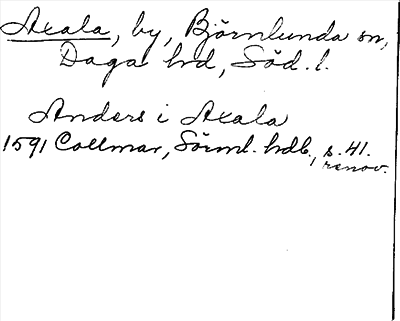 Axala, by, Björnlunda sn,
Daga hd, Söd. l.
Anders i Axala
1591 Collmar, Sörml. hdb., s. 41.
renov.